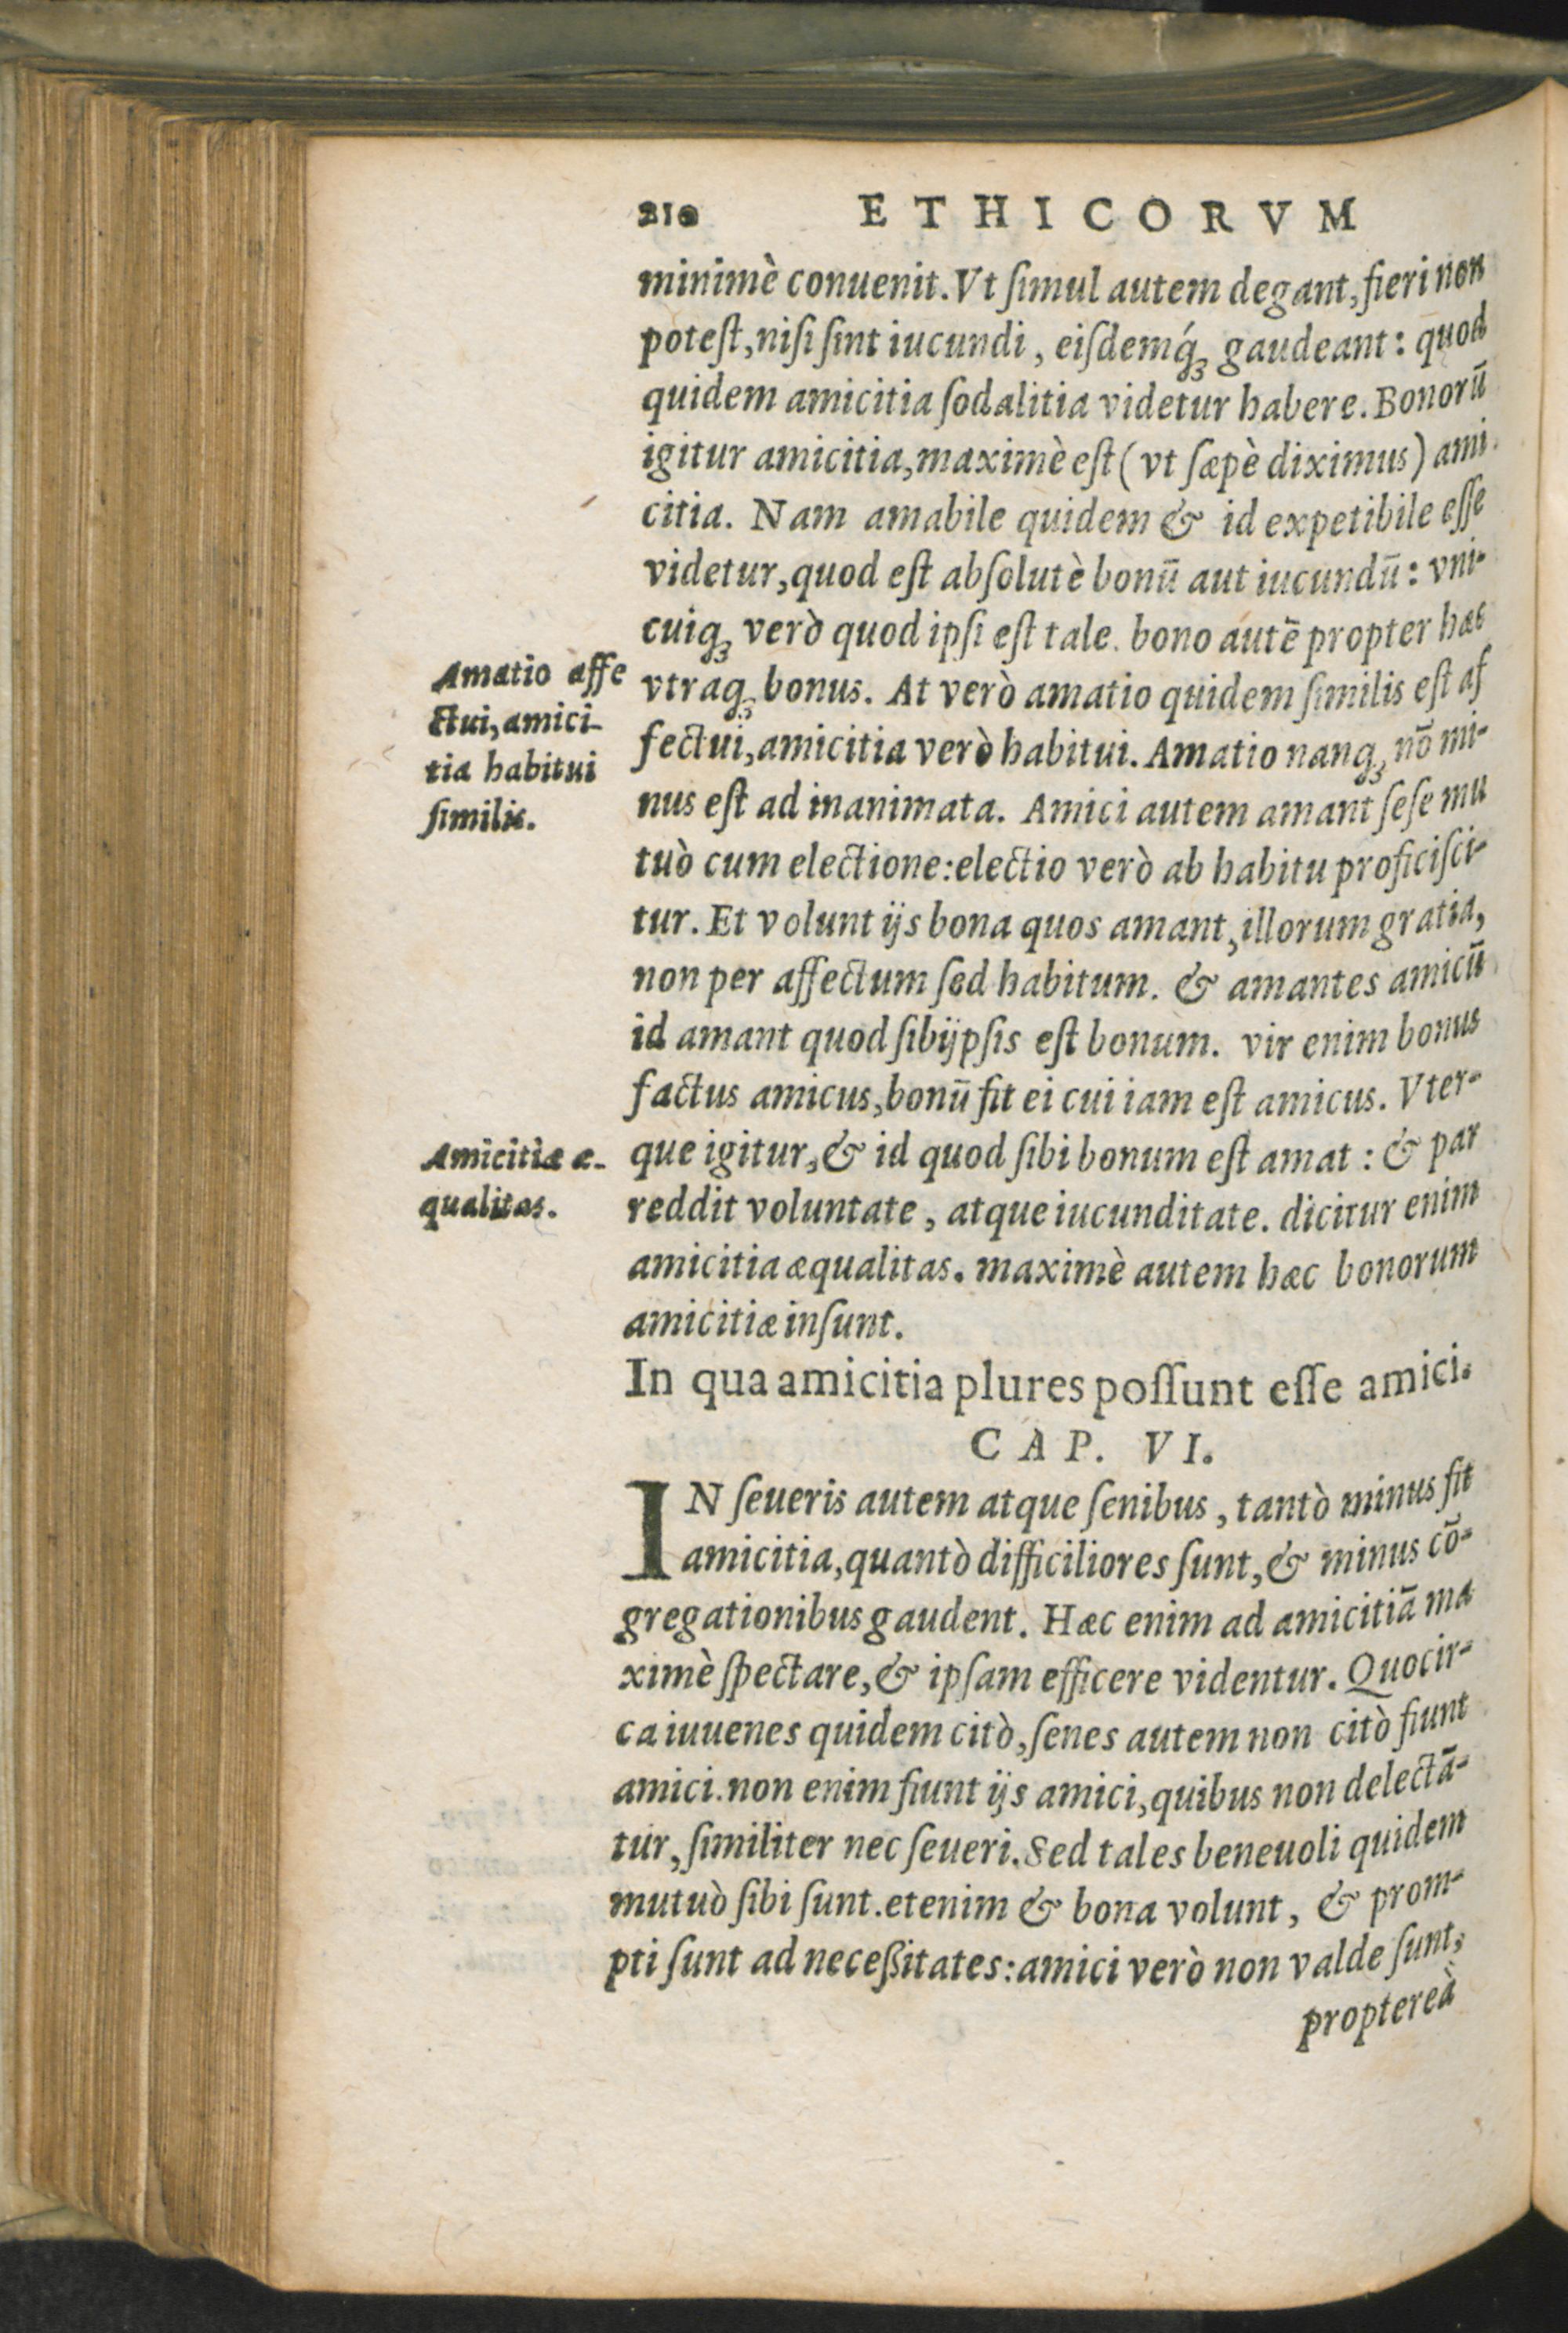 210 ETHICORVM
minimè conuenit. Vt ſimul autem degant, fieri non
poteſt, niſi ſint iucundi, eiſdemq́; gaudeant: quod
quidem amicitia ſodalitia videtur habere. Bonorū
igitur amicitia, maximè eſt (vt ſæpè diximus) ami
citia. Nam amabile quidem & id expetibile eſſe
videtur, quod eſt abſolutè bonū aut iucundū: vni-
cuiq; verò quod ipſi eſt tale. bono autē propter hæc
vtraq; bonus. At verò amatio quidem ſimilis eſt af
fectui, amicitia verò habitui. Amatio nanq; nō mi-
nus eſt ad inanimata. Amici autem amant ſeſe mu
tuò cum electione: electio verò ab habitu proficiſci-
tur. Et volunt ijs bona quos amant, illorum gratia,
non per affectum ſed habitum. & amantes amicū
id amant quod ſibijpſis eſt bonum. vir enim bonus
factus amicus, bonū fit ei cui iam eſt amicus. Vter-
que igitur, & id quod ſibi bonum eſt amat: & par
reddit voluntate, atque iucunditate. dicitur enim
amicitia æqualitas. maximè autem hæc bonorum
amicitiæ inſunt.
Amatio affe
ctui, amici-
tia habitui
ſimilis.
Amicitiæ æ-
qualitas.
In qua amicitia plures poſſunt eſſe amici.
CAP. VI.
IN ſeueris autem atque ſenibus, tantò minus fit
amicitia, quantò difficiliores ſunt, & minus cō-
gregationibus gaudent. Hæc enim ad amicitiā ma
ximè ſpectare, & ipſam efficere videntur. Quocir-
ca iuuenes quidem citò, ſenes autem non citò fiunt
amici. non enim fiunt ijs amici, quibus non delectā-
tur, ſimiliter nec ſeueri. Sed tales beneuoli quidem
mutuò ſibi ſunt. etenim & bona volunt, & prom-
pti ſunt ad neceßitates: amici verò non valde ſunt,
proptereà